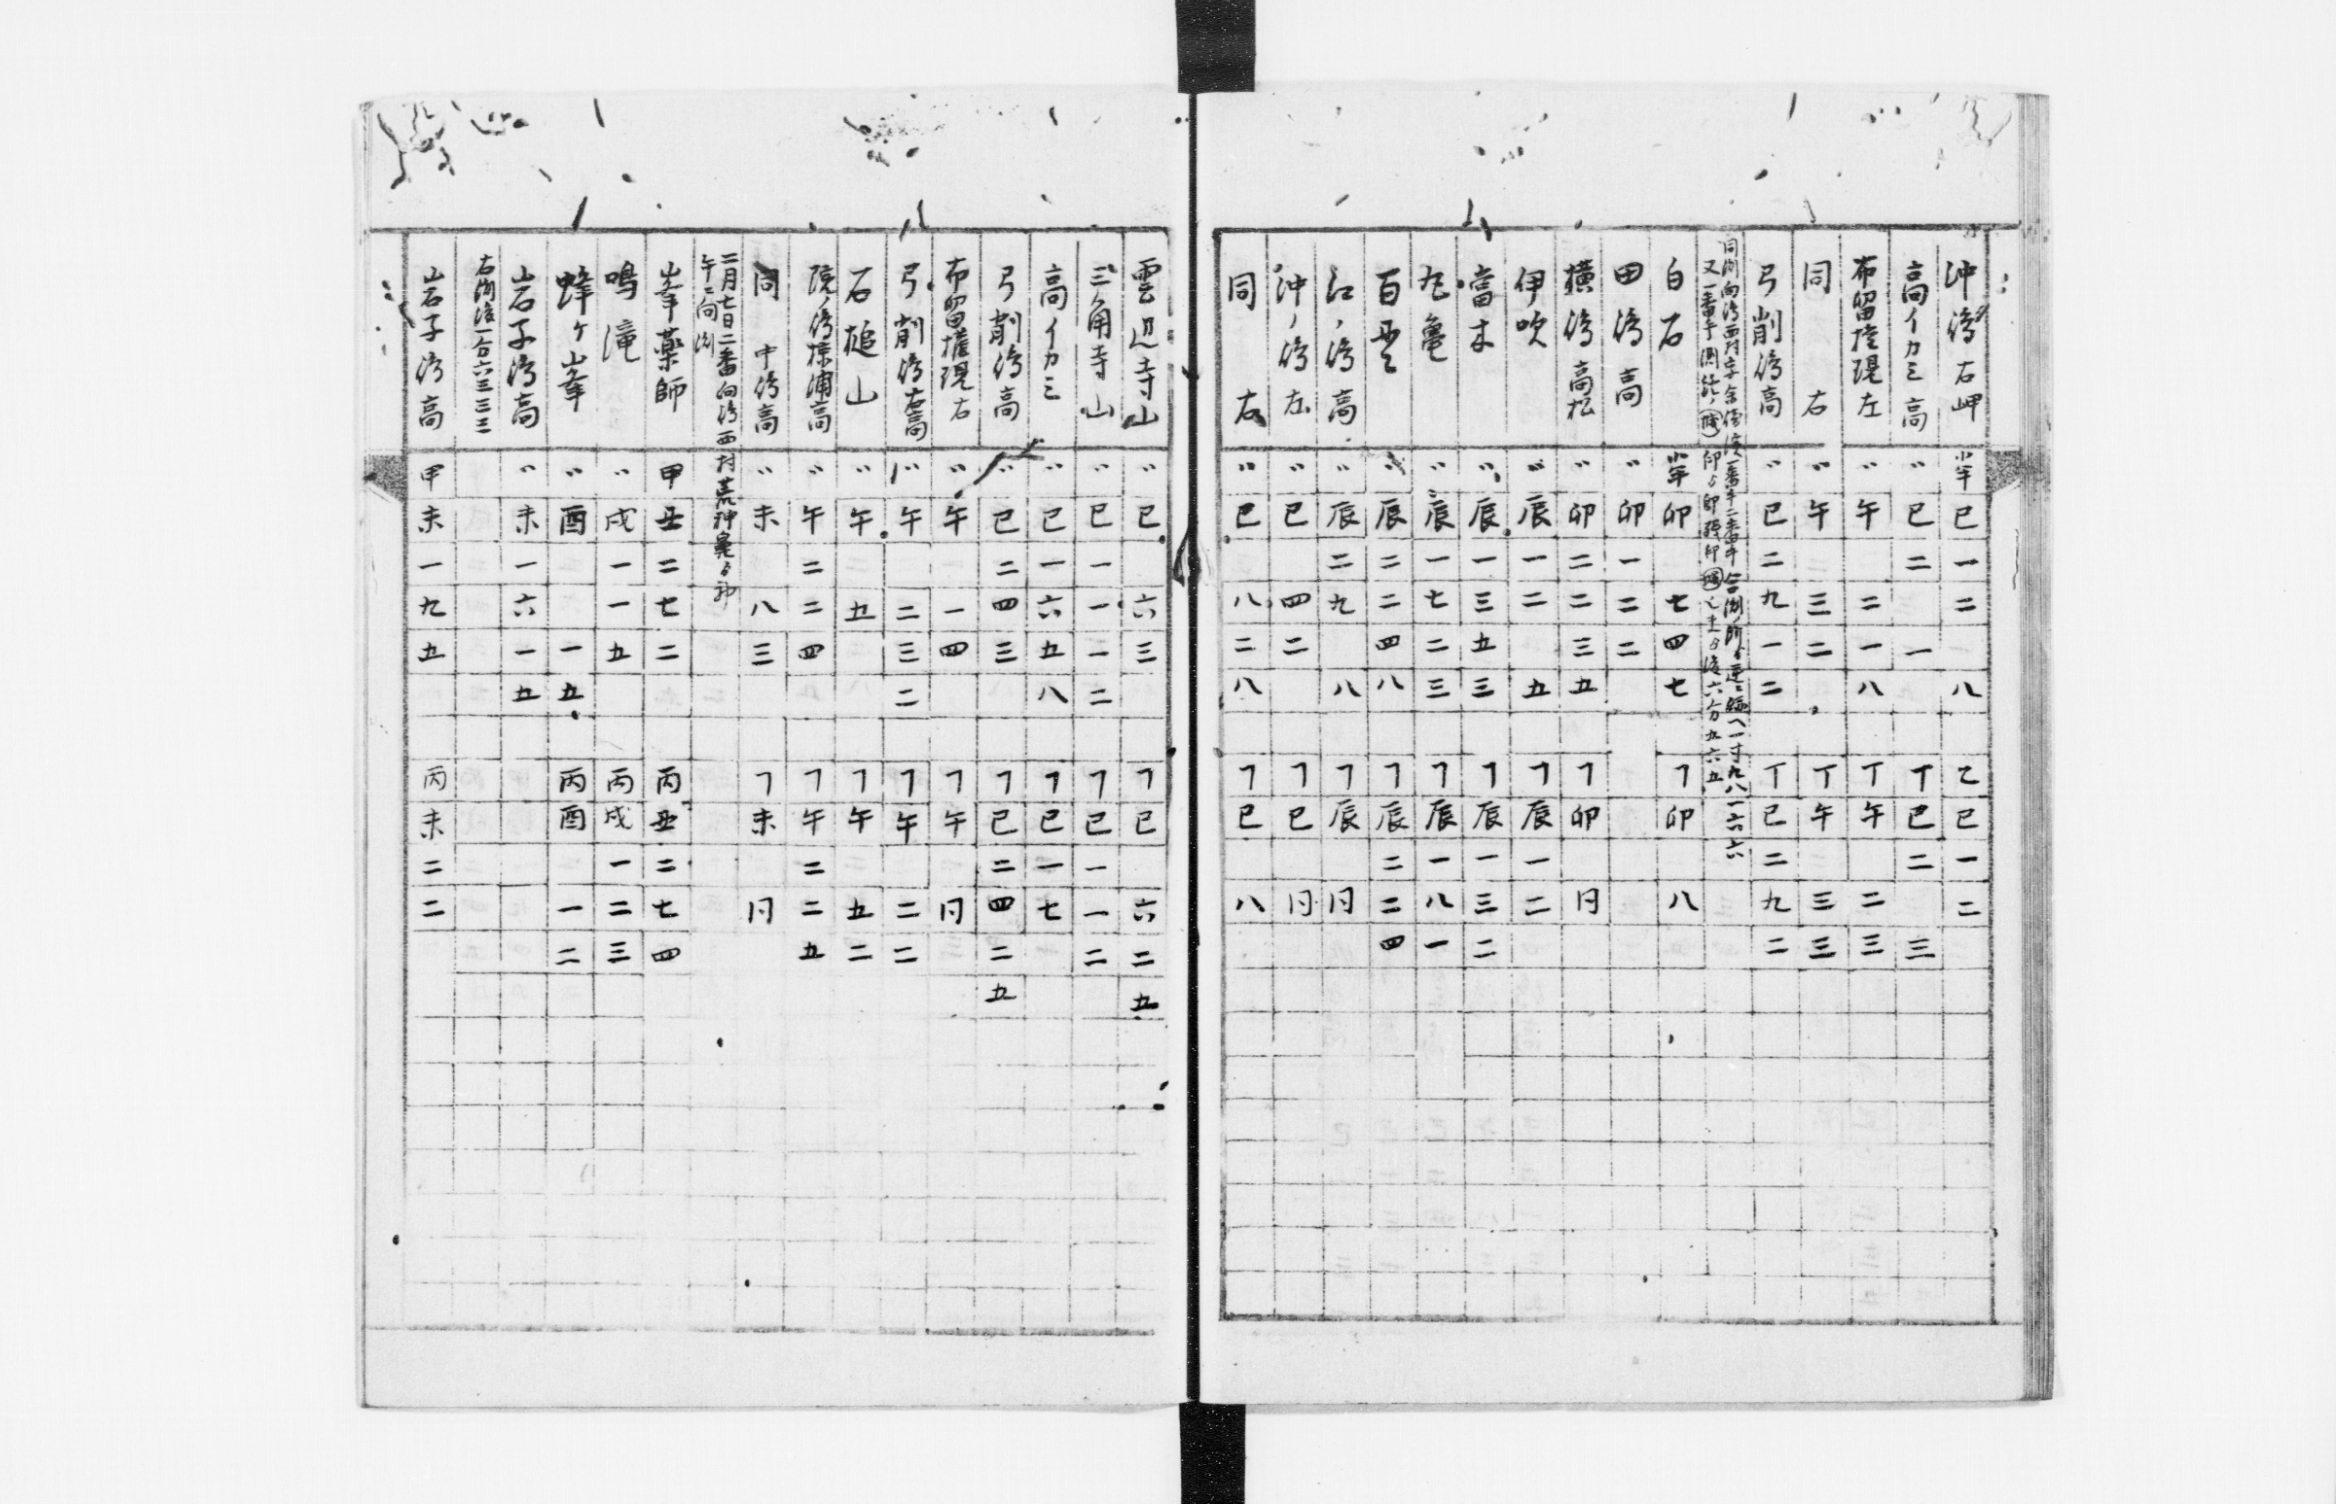 沖 㠀 右岬 小半 巳 一 二 八 乙 巳 一 二
高イカミ 高 〃 巳 二 一 丁 巳 二 三
布留権現 左 〃 午 二 一 八 丁 午 二 三
同 右 〃 午 三 二 丁 午 三 三
弓削㠀 高 〃 巳 二 九 一 二 丁 巳 二 九 二
白石 小半 卯 七 四 七 丁 卯 八
田㠀 高 〃 卯 一 二 二
横㠀 高松 〃 卯 二 二 三 五 丁 卯 同
伊吹 〃 辰 一 二 五 丁 辰 一 二
當木 〃 辰 一 三 五 三 丁 辰 一 三 二
丸亀 〃 辰 一 七 二 三 丁 辰 一 八 一
百貫 〃 辰 二 二 四 八 丁 辰 二 二 四
江ノ㠀 高 〃 辰 二 九 八 丁 辰 同
沖ノ㠀 左 〃 巳 四 二 丁 巳 同
同 右 〃 巳 八 二 八 丁 巳 八
雲辺寺山 〃 巳 六 三 丁 巳 六 二 五
三角寺山 〃 巳 一 一 一 二 丁 巳 一 一 二
高イカミ 〃 巳 一 六 五 八 丁 巳 一 七
弓削㠀 高 〃 巳 二 四 三 丁 巳 二 四 二 五
布留権現 右 〃 午 一 四 丁 午 同
弓削㠀 右高 〃 午 二 三 二 丁 午 二 二
石槌山 〃 午 五 丁 午 五 二
〃 午 二 二 四 丁 午 二 二 五
同 中㠀 高 〃 未 八 三 丁 未 同
二月七日二番向㠀西村荒神
午ニ向測
峯薬師 甲 丑 二 七 二 丙 丑 二 七 四
鳴滝 〃 戌 一 一 五 丙 戌 一 二 三
蜂ケ峯 〃 酉 一 五 丙 酉 一 二
岩子㠀 高 〃 未 一 六 一 五
右測後一合六三三三
岩子㠀 高 甲 未 一 九 五 丙 未 二 二